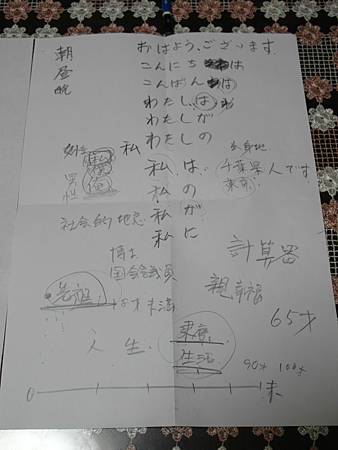 おはようございます
朝
昼
晩
こんにちは
こんばんは
わたしは
わたしが
わたしの
私
出身地
千葉県人です
東京
女性
男性
私
僕
俺
私は
私の
私が
私に
社会的地位
博士
国会議員
計算器
親孝行
65才
人生
東京
生活
90才 100才
0